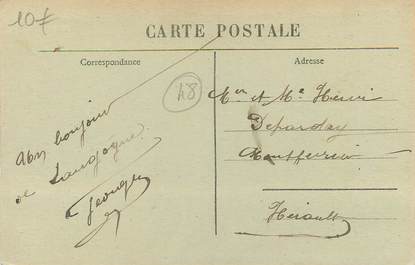 10€
CARTE POSTALE
Correspondance
Adresse
48
Mon bonjour
de Langogne.
Georges
Mr et Me Henri
Deparday
Montferrier
Hérault